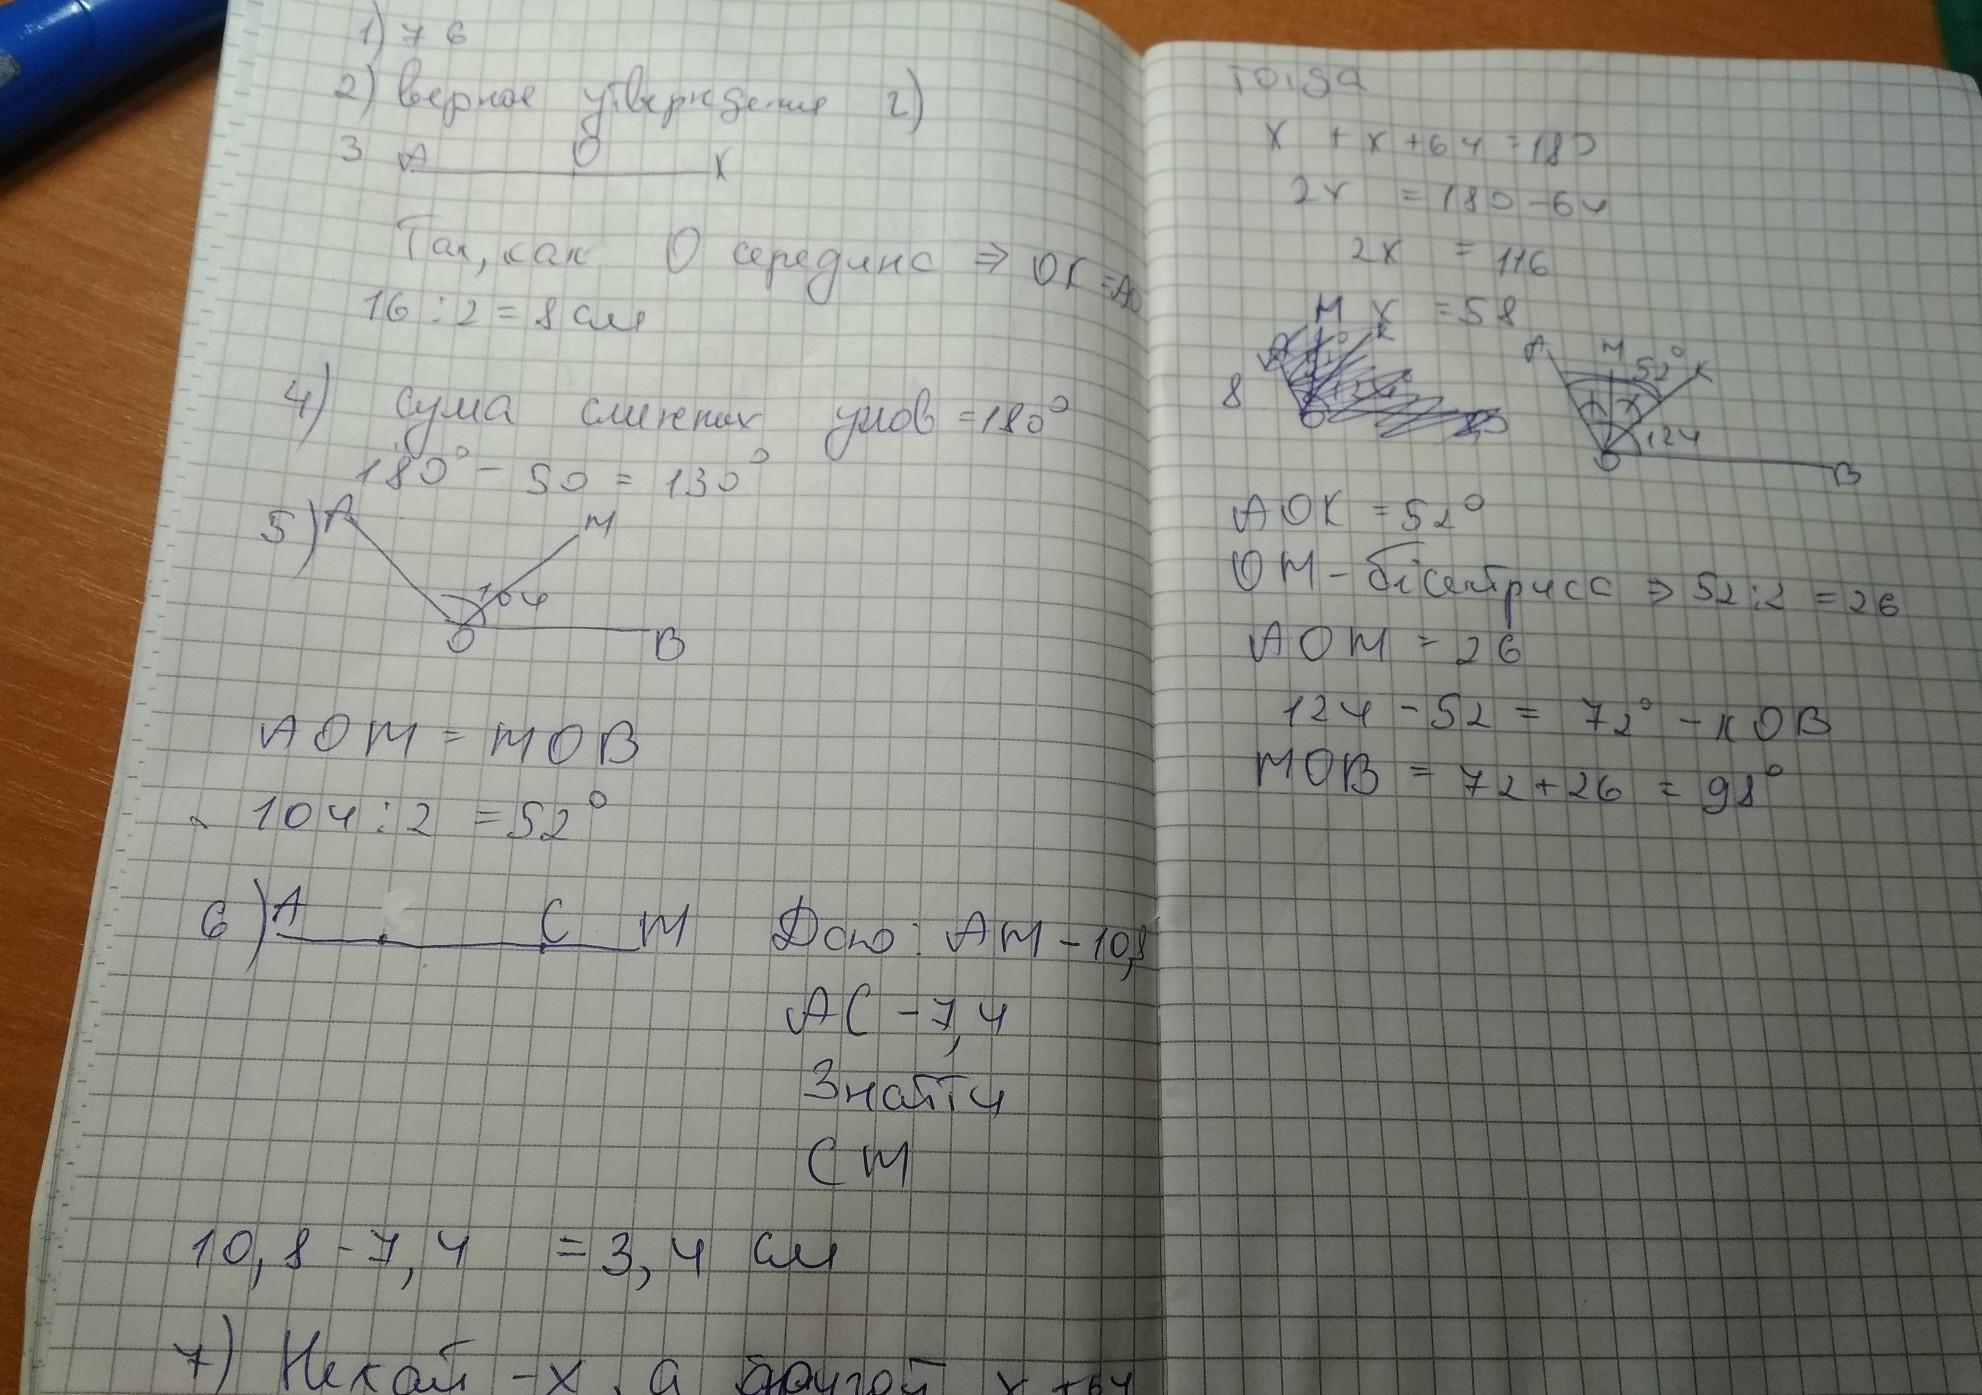 1) 76
2) верное утверждение г)
3 A O K
Так, как О середина ⇒ OK = AO
16 : 2 = 8 см
4) сума смежных углов = 180°
180° - 50 = 130°
5) A M
104
O B
AOM = MOB
104 : 2 = 52°
6) A C M Дано: AM - 10,8
AC - 7,4
Знайти
CM
10,8 - 7,4 = 3,4 см
7) Нехай - x, а другой x + 64
Тоiда
x + x + 64 = 180
2x = 180 - 64
2x = 116
x = 58
8 M K
A M 52° K
124
O B
AOK = 52°
OM - бісектриса ⇒ 52 : 2 = 26
AOM = 26
124 - 52 = 72° - KOB
MOB = 72 + 26 = 98°